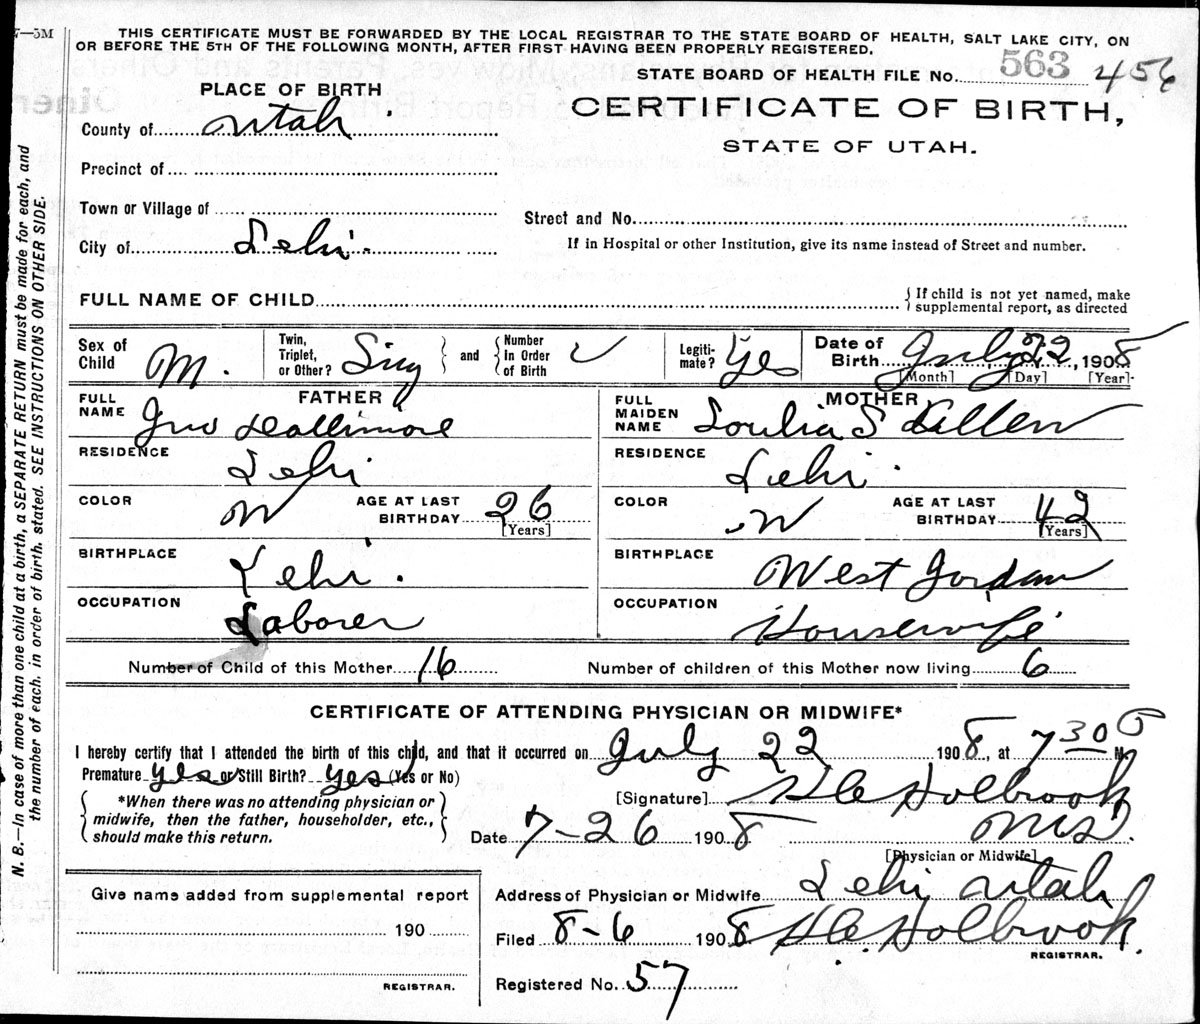 7—5M
THIS CERTIFICATE MUST BE FORWARDED BY THE LOCAL REGISTRAR TO THE STATE BOARD OF HEALTH, SALT LAKE CITY, ON
OR BEFORE THE 5TH OF THE FOLLOWING MONTH, AFTER FIRST HAVING BEEN PROPERLY REGISTERED.
STATE BOARD OF HEALTH FILE No. 563 456
PLACE OF BIRTH
CERTIFICATE OF BIRTH,
STATE OF UTAH.
County of Utah
Precinct of
Town or Village of
Street and No.
City of Lehi.
If in Hospital or other Institution, give its name instead of Street and number.
FULL NAME OF CHILD
If child is not yet named, make
supplemental report, as directed
Sex of Child M.
Twin, Triplet, or Other? Sing and Number in Order of Birth
Legiti-mate? Yes
Date of Birth July 22, 1908
[Month] [Day] [Year]
FATHER
FULL NAME Jno
MOTHER
FULL MAIDEN NAME S
RESIDENCE Lehi
RESIDENCE Lehi.
COLOR W AGE AT LAST BIRTHDAY 26 [Years]
COLOR W AGE AT LAST BIRTHDAY 42 [Years]
BIRTHPLACE Lehi.
BIRTHPLACE West Jordan
OCCUPATION Laborer
OCCUPATION Housewife
Number of Child of this Mother 16
Number of children of this Mother now living 6
CERTIFICATE OF ATTENDING PHYSICIAN OR MIDWIFE*
I hereby certify that I attended the birth of this child, and that it occurred on July 22 1908, at 7 30 M
Premature yes or Still Birth? yes (Yes or No)
*When there was no attending physician or
midwife, then the father, householder, etc.,
should make this return.
[Signature] Holbrook
Date 7-26 1908 M.D.
[Physician or Midwife]
Give name added from supplemental report
190
REGISTRAR.
Address of Physician or Midwife Lehi Utah
Filed 8-6 1908 Holbrook.
REGISTRAR.
Registered No. 57
N. B.—In case of more than one child at a birth, a SEPARATE RETURN must be made for each, and
the number of each, in order of birth, stated. SEE INSTRUCTIONS ON OTHER SIDE.